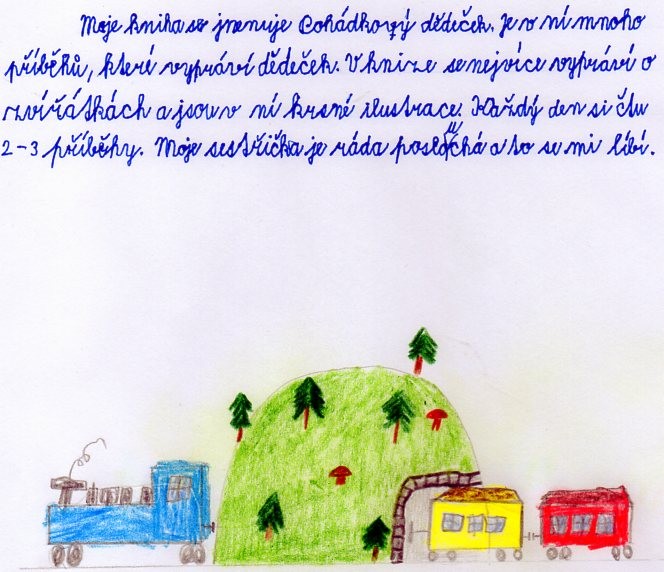 Moje kniha se jmenuje Pohádkový dědeček. Je v ní mnoho
příběhů, které vypráví dědeček. V knize se nejvíce vypráví o
zvířátkách a jsou v ní krsné ilustrace. Každý den si čtu
2-3 příběhy. Moje sestřička je ráda poslouchá a to se mi líbí.